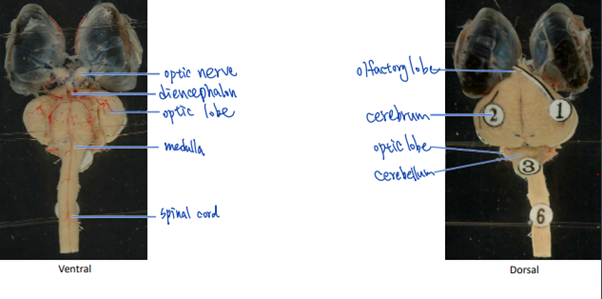 optic nerve
diencephalon
optic lobe
medulla
spinal cord
Ventral
olfactory lobe
cerebrum
optic lobe
cerebellum
1
2
3
6
Dorsal